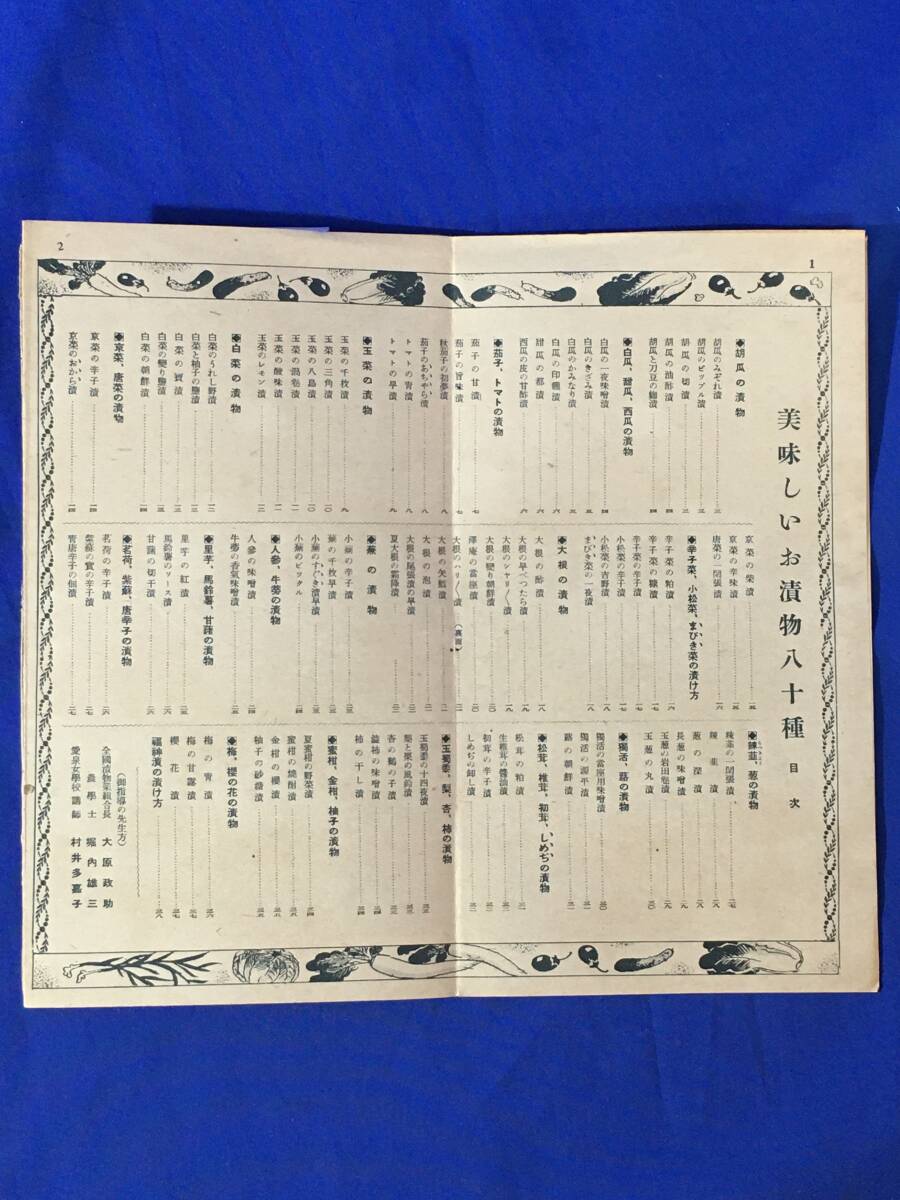 1
美味しいお漬物八十種 目次
◆胡瓜の漬物
胡瓜のみぞれ漬…………三
胡瓜のピックル…………三
胡瓜の切漬…………三
胡瓜の油酢漬…………四
胡瓜と刀豆の麹漬…………四
◆白瓜、甜瓜、西瓜の漬物
白瓜の一夜味噌漬…………四
白瓜のきざみ漬…………五
白瓜のかみなり漬…………五
白瓜の印籠漬…………六
甜瓜の都漬…………六
西瓜の皮の甘酢漬…………六
◆茄子、トマトの漬物
茄子の甘漬…………七
茄子の旨味漬…………七
秋茄子の初夢漬…………八
茄子のあちやら漬…………八
トマトの青漬…………八
トマトの早漬…………九
◆玉菜の漬物
玉菜の千枚漬…………九
玉菜の三角漬…………一〇
玉菜の八島漬…………一〇
玉菜の渦巻漬…………一一
玉菜の酸味漬…………一一
玉菜のレモン漬…………一二
◆白菜の漬物
白菜のうれし野漬…………一二
白菜と柚子の鹽漬…………一三
白菜の寶漬…………一三
白菜の變り鹽漬…………一三
白菜の朝鮮漬…………一四
◆京菜、唐菜の漬物
京菜の辛子漬…………一四
京菜のおから漬…………一四
京菜の柴漬…………一五
京菜の辛味漬…………一五
唐菜の一閑張漬…………一六
◆辛子菜、小松菜、まびき菜の漬け方
辛子菜の粕漬…………一六
辛子菜の糠漬…………一七
辛子菜の辛子漬…………一七
小松菜の辛子漬…………一七
小松菜の吉野漬…………一八
まびき菜の一夜漬…………一八
◆大根の漬物
大根の酢漬…………一八
大根の早べつたら漬…………一九
大根のシヤリ〱漬…………一九
大根の變り朝鮮漬…………二〇
澤庵の當座漬…………二〇
大根のハリ〱漬(裏面)…………二一
大根の矢鱈漬…………二一
大根の泡漬…………二一
大根の尾張漬の早漬…………二二
夏大根の霜降漬…………二二
◆蕪の漬物
小蕪の辛子漬…………二三
蕪の千枚早漬…………二三
小蕪のすぐき漬の早漬…………二三
小蕪のピックル…………二四
◆人參、牛蒡の漬物
人參の味噌漬…………二四
牛蒡の香氣味噌漬…………二五
◆里芋、馬鈴薯、甘藷の漬物
里芋の紅漬…………二五
馬鈴薯のソース漬…………二六
甘藷の切干漬…………二六
◆茗荷、紫蘇、唐辛子の漬物
茗荷の辛子漬…………二六
紫蘇の實の辛子漬…………二七
青唐辛子の佃漬…………二七
◆辣韮、葱の漬物
辣薤の一閑張漬…………二七
辣韮漬…………二八
葱の深漬…………二八
長葱の味噌漬…………二九
玉葱の岩田卷漬…………二九
玉葱の丸漬…………三〇
◆獨活、蕗の漬物
獨活の當座用味噌漬…………三〇
獨活の源平漬…………三一
蕗の朝鮮漬…………三一
◆松茸、椎茸、初茸、しめぢの漬物
松茸の粕漬…………三一
生椎茸の醬油漬…………三二
初茸の辛子漬…………三二
しめぢの卸し漬…………三二
◆玉蜀黍、梨、杏、柿の漬物
玉蜀黍の十四夜漬…………三三
梨と栗の風鈴漬…………三三
杏の鶴の子漬…………三三
澁柿の味噌漬…………三四
柿の干し漬…………三四
◆蜜柑、金柑、柚子の漬物
夏蜜柑の野菜漬…………三四
蜜柑の燒酎漬…………三五
金柑の櫻漬…………三五
柚子の砂糖漬…………三五
◆梅、櫻の花の漬物
梅の青漬…………三六
梅の甘露漬…………三七
櫻花漬…………三七
福神漬の漬け方…………三八
(御指導の先生方)
全國漬物業組合長 大原政助
農學士 堀内雄三
愛泉女學校講師 村井多嘉子
2